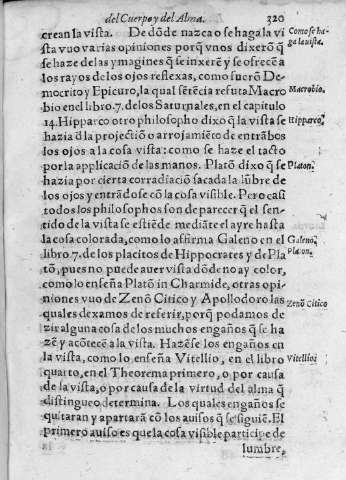 del Cuerpo y del Alma. 320
crean la vista. De dõde nazca o se haga la vi
sta vuo varias opiniones porq̃ vnos dixerõ q̃
se haze de las ymagines q̃ se inxerẽ y se ofrecẽ a
los rayos de los ojos reflexas, como fuerõ De-
mocrito y Epicuro, la qual sẽtẽcia refuta Macro
bio en el libro. 7. de los Saturnales, en el capitulo
14. Hipparco otro philosopho dixo q̃ la vista se
hazia d̃ la projectiõ o arrojamiẽto de entrãbos
los ojos a la cosa vista: como se haze el tacto
por la applicaciõ de las manos. Platõ dixo q̃ se
hazia por cierta corradiaciõ sacada la lũbre de
los ojos y entrãdose cõ la cosa visible. Pero casi
todos los philosophos son de parecer q̃ el sen-
tido de la vista se estiẽde mediãte el ayre hasta
la cosa colorada, como lo affirma Galeno en el
libro. 7. de los placitos de Hippocrates y de Pla
tõ, pues no puede auer vista dõde no ay color,
como lo enseña Platõ in Charmide, otras opi-
niones vuo de Zenõ Citico y Apollodoro las
quales dexamos de referir, porq̃ podamos de-
zir alguna cosa de los muchos engaños q̃ se ha
zẽ y acõtecẽ a la vista. Hazẽse los engaños en
la vista, como lo enseña Vitellio, en el libro
quarto, en el Theorema primero, o por causa
de la vista, o por causa de la virtud del alma q̃
distingue o determina. Los quales engaños se
quitaran y apartarã cõ los auisos q̃ se siguẽ. El
primero auiso es que la cosa visible participe de
lumbre,
Como se ha-
ga la vista.
Macrobio.
Hipparco.
Platon.
Galeno.
Platon.
Zenõ Citico
Vitellio.